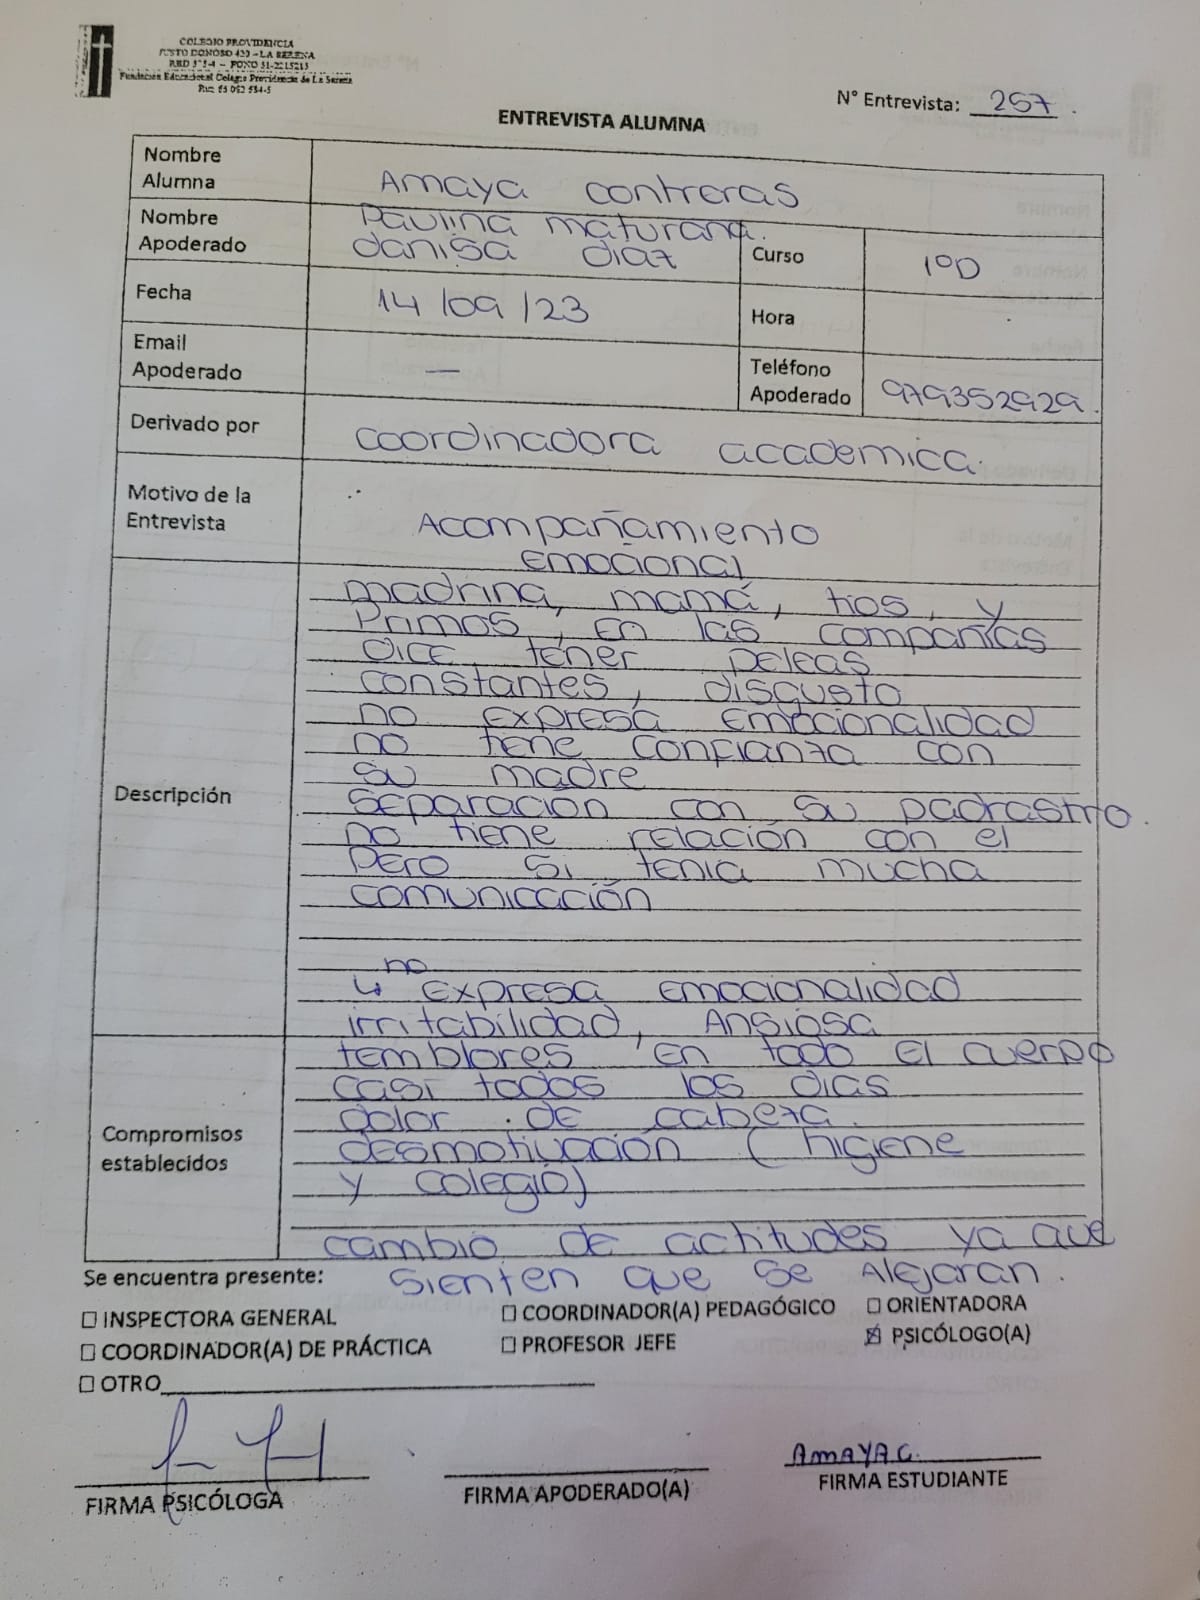 COLEGIO PROVIDENCIA
JUSTO DONOSO 420 - LA SERENA
Fundación Educacional Colegio Providencia de La Serena
N° Entrevista: 257.
ENTREVISTA ALUMNA
Nombre Alumna
Amaya contreras
Nombre Apoderado
Paulina maturana.
danisa diaz
Curso
1°D
Fecha
14/09/23
Hora
Email Apoderado
—
Teléfono Apoderado
979352929.
Derivado por
coordinadora academica.
Motivo de la Entrevista
Acompañamiento
Emocional
Descripción
madrina, mamá, tios, y
Primos, en las compañias
dice tener peleas
constantes, disgusto
no expresa emocionalidad
no tiene confianza con
su madre
separacion con su padrastro.
no tiene relación con el
pero si tenia mucha
comunicación
no
↳ expresa emocionalidad
irritabilidad, Ansiosa
Compromisos establecidos
temblores en todo el cuerpo
casi todos los dias
dolor de cabeza.
desmotivación (higiene
y colegio)
cambio de actitudes ya que
sienten que se Alejaran.
Se encuentra presente:
☐ INSPECTORA GENERAL
☐ COORDINADOR(A) PEDAGÓGICO
☐ ORIENTADORA
☐ COORDINADOR(A) DE PRÁCTICA
☐ PROFESOR JEFE
☒ PSICÓLOGO(A)
☐ OTRO
AMAYA C.
FIRMA PSICÓLOGA
FIRMA APODERADO(A)
FIRMA ESTUDIANTE